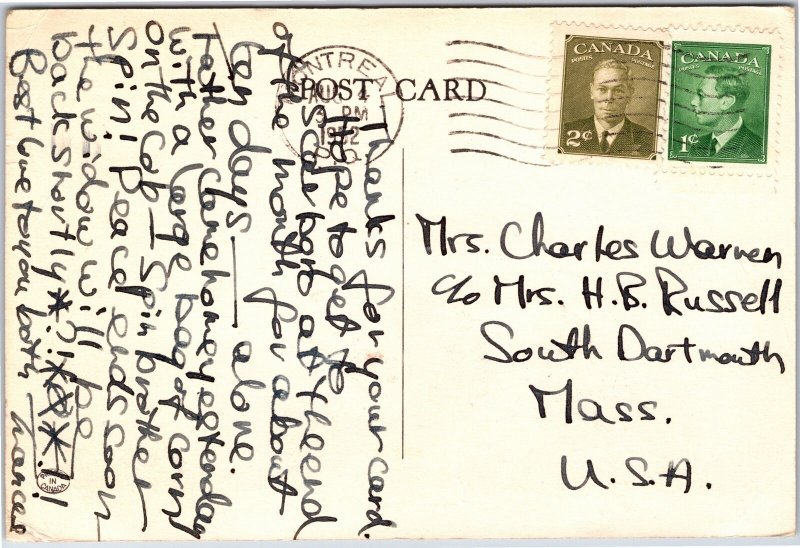 POST CARD
MONTREAL
3 PM
1952
P.Q.
CANADA
POSTES POSTAGE
2¢
CANADA
POSTES POSTAGE
1¢
Mrs. Charles Warren
c/o Mrs. H.B. Russell
South Dartmouth
Mass.
U.S.A.
Thanks for your card.
Hope to get to
Scarboro at the end
of the month for about
ten days — alone.
Father came home yesterday
with a large bag of corn
on the cob — Spin brother
Spin! Peace ends soon
the widow will be
back shortly
Best love to you both Frances
IN
CANADA